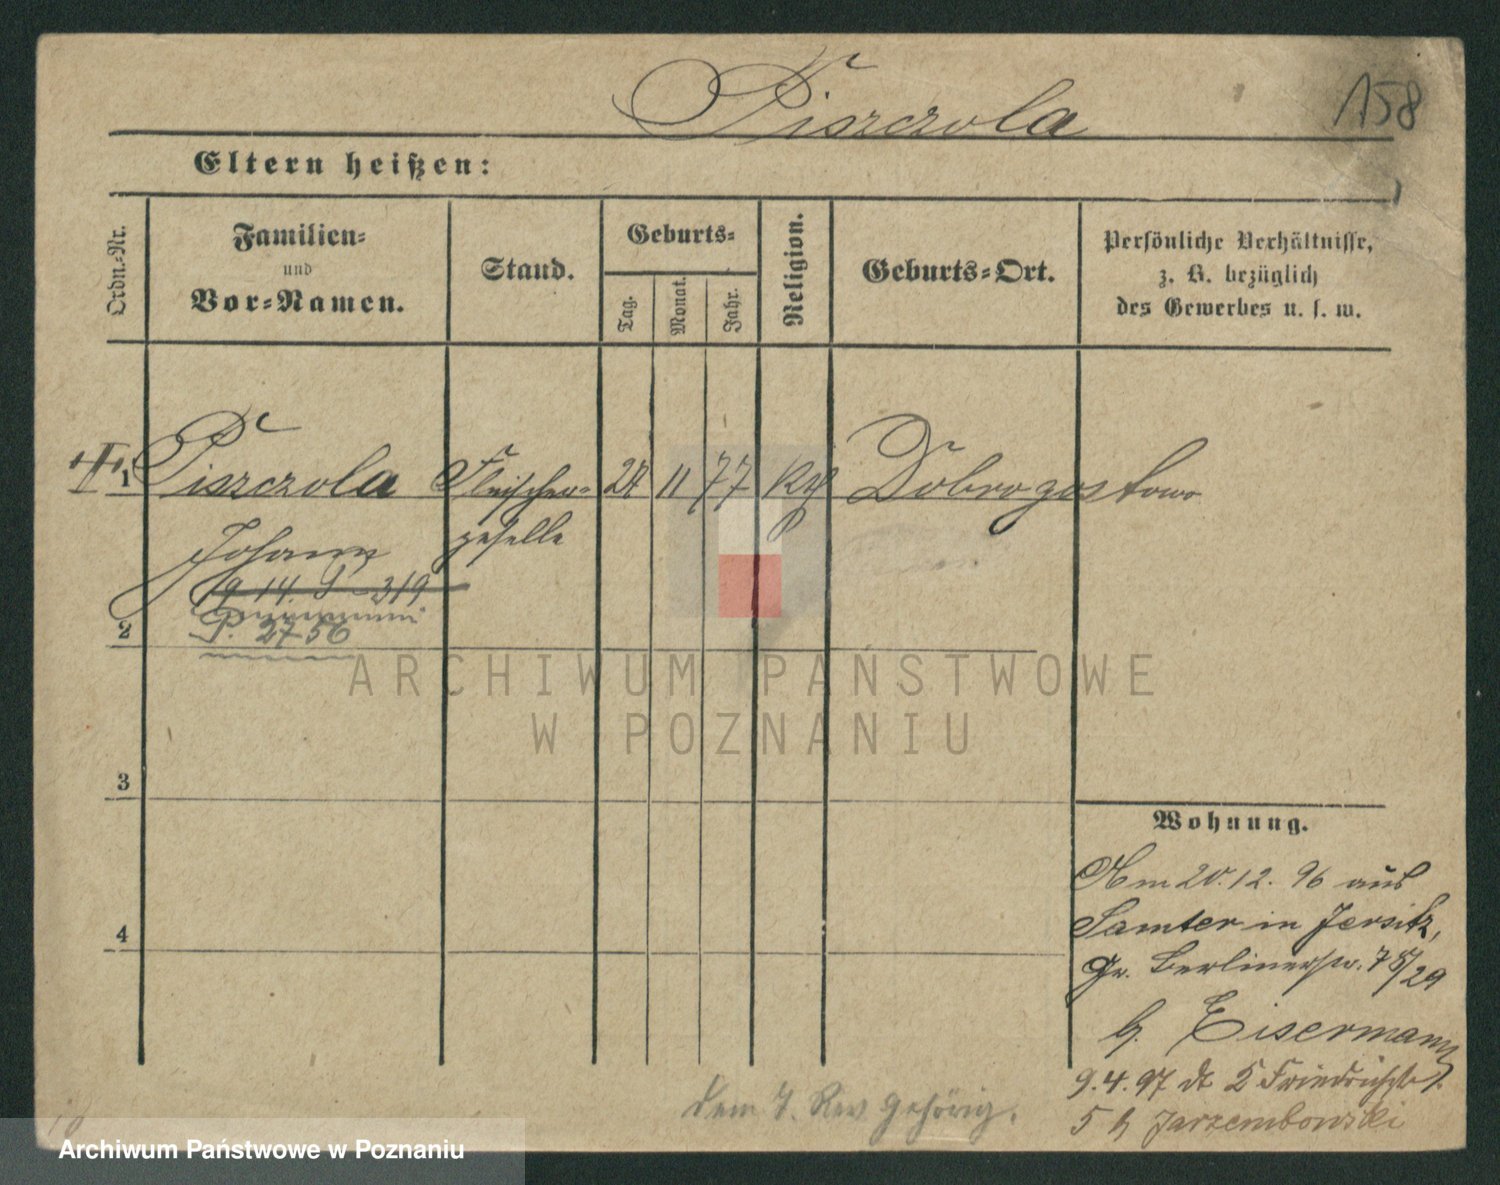 Piszczola
158
Eltern heißen:
Ordn.-Nr.
Familien-
und
Vor-Namen.
Stand.
Geburts-
Tag.
Monat.
Jahr.
Religion.
Geburts-Ort.
Persönliche Verhältnisse,
z. B. bezüglich
des Gewerbes u. s. w.
1 Piszczola Fleischer- 11 77 Dobrogostowo
Johann geselle
19 14. 319
2
P. 2756
ARCHIWUM PAŃSTWOWE
W POZNANIU
3
Wohnung.
Am 20.12. 96 aus
Samter in Jersitz,
Gr. Berlinerstr. 78/29
4
b. Eisermann
9.4.97 2 Friedrichstr.
5 b Jarzembowski
dem 7. Rev gehörig.
Archiwum Państwowe w Poznaniu